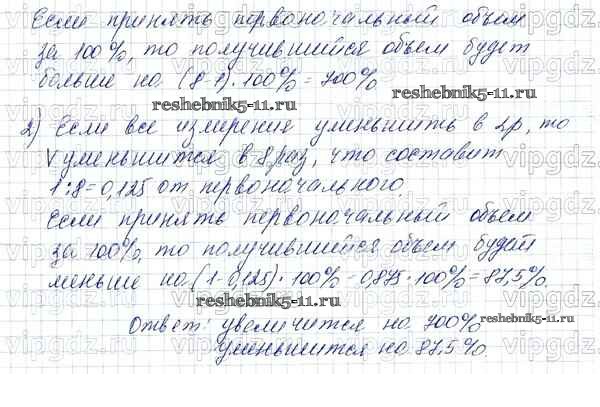 Если принять первоначальный объем
за 100%, то получившийся объем будет
больше на (8-1)·100% = 700%
reshebnik5-11.ru
reshebnik5-11.ru
2) Если все измерения уменьшить в 2р, то
V уменьшится в 8 раз, что составит
1:8=0,125 от первоначального.
Если принять первоначальный объем
за 100%, то получившийся объем будет
меньше на (1-0,125)·100% = 0,875·100% = 87,5%.
reshebnik5-11.ru
Ответ: увеличится на 700%
reshebnik5-11.ru
уменьшится на 87,5%.
vipgdz